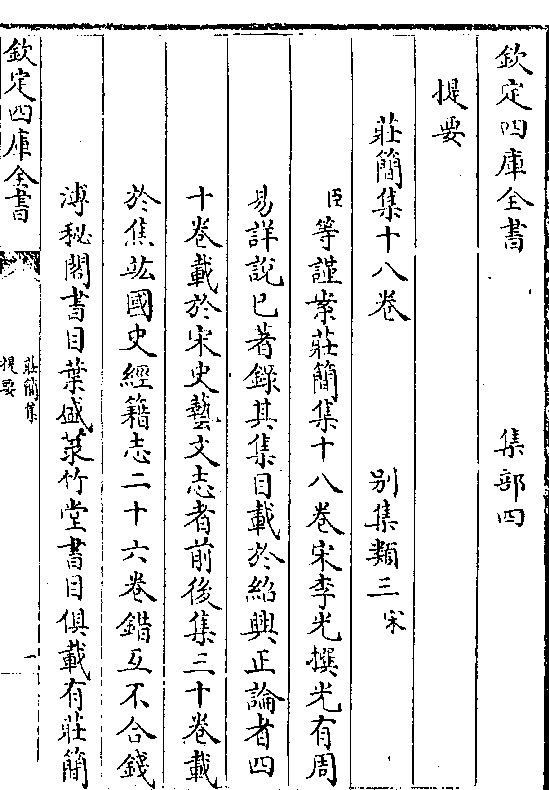 欽定四庫全書 集部四
提要
莊簡集十八卷 别集類三宋
臣等謹案莊簡集十八卷宋李光撰光有周
易詳說已著錄其集目載於紹興正論者四
十卷載於宋史藝文志者前後集三十卷載
於焦竑國史經籍志二十六卷錯互不合錢
溥秘閣書目葉盛菉竹堂書目俱載有莊簡
欽定四庫全書
莊簡集
提要
一